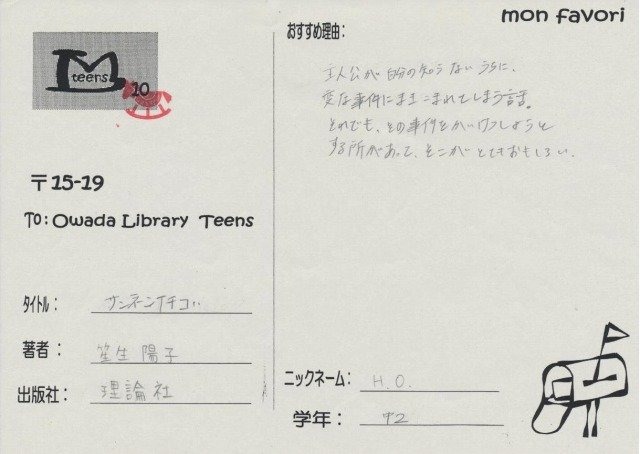 mon favori
M teens
10
〒15-19
To: Owada Library Teens
タイトル: サンネンイチゴ
著者: 笹生 陽子
出版社: 理論社
おすすめ理由:
主人公が自分の知らないうちに、
変な事件にまきこまれてしまう話。
それでも、その事件をかいけつしようと
する所があって、そこがとてもおもしろい。
ニックネーム: H.O.
学年: 中2